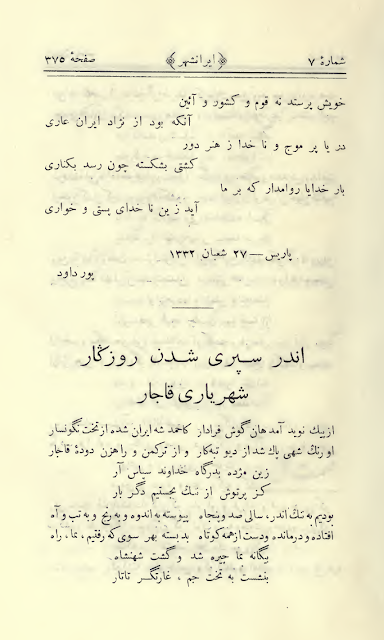 شمارهٔ ۷ ﴿ ایرانشهر ﴾ صفحهٔ ۳۷۵
خویش پرستد نه قوم و کشور و آئین
آنکه بود از نژاد ایران عاری
دریا پر موج و نا خدا ز هنر دور
کشتی بشکسته چون رسد بکناری
بار خدایا روامدار که بر ما
آید زین نا خدای پستی و خواری
پاریس — ۲۷ شعبان ۱۳۳۲
پور داود
اندر سپری شدن روزگار
شهریاری قاجار
از پیك نوید آمد هان گوش فرادار کاحمد شه ایران شده از تخت نگونسار
اورنگ شهی پاك شد از دیو تبه‌کار و از ترکمن و راهزن دودهٔ قاجار
زین مژده بدرگاه خداوند سپاس آر
کز پرتوش از ننگ بجستیم دگر بار
بودیم به ننگ اندر، سالی صد و پنجاه پیوسته به اندوه و به رنج و به تب و آه
افتاده و درمانده و دست از همه کوتاه بد بسته بهر سوی که رفتیم، بما، راه
بیگانه بما چیره شد و گشت شهنشاه
بنشست به تخت جم، غارتگر تاتار